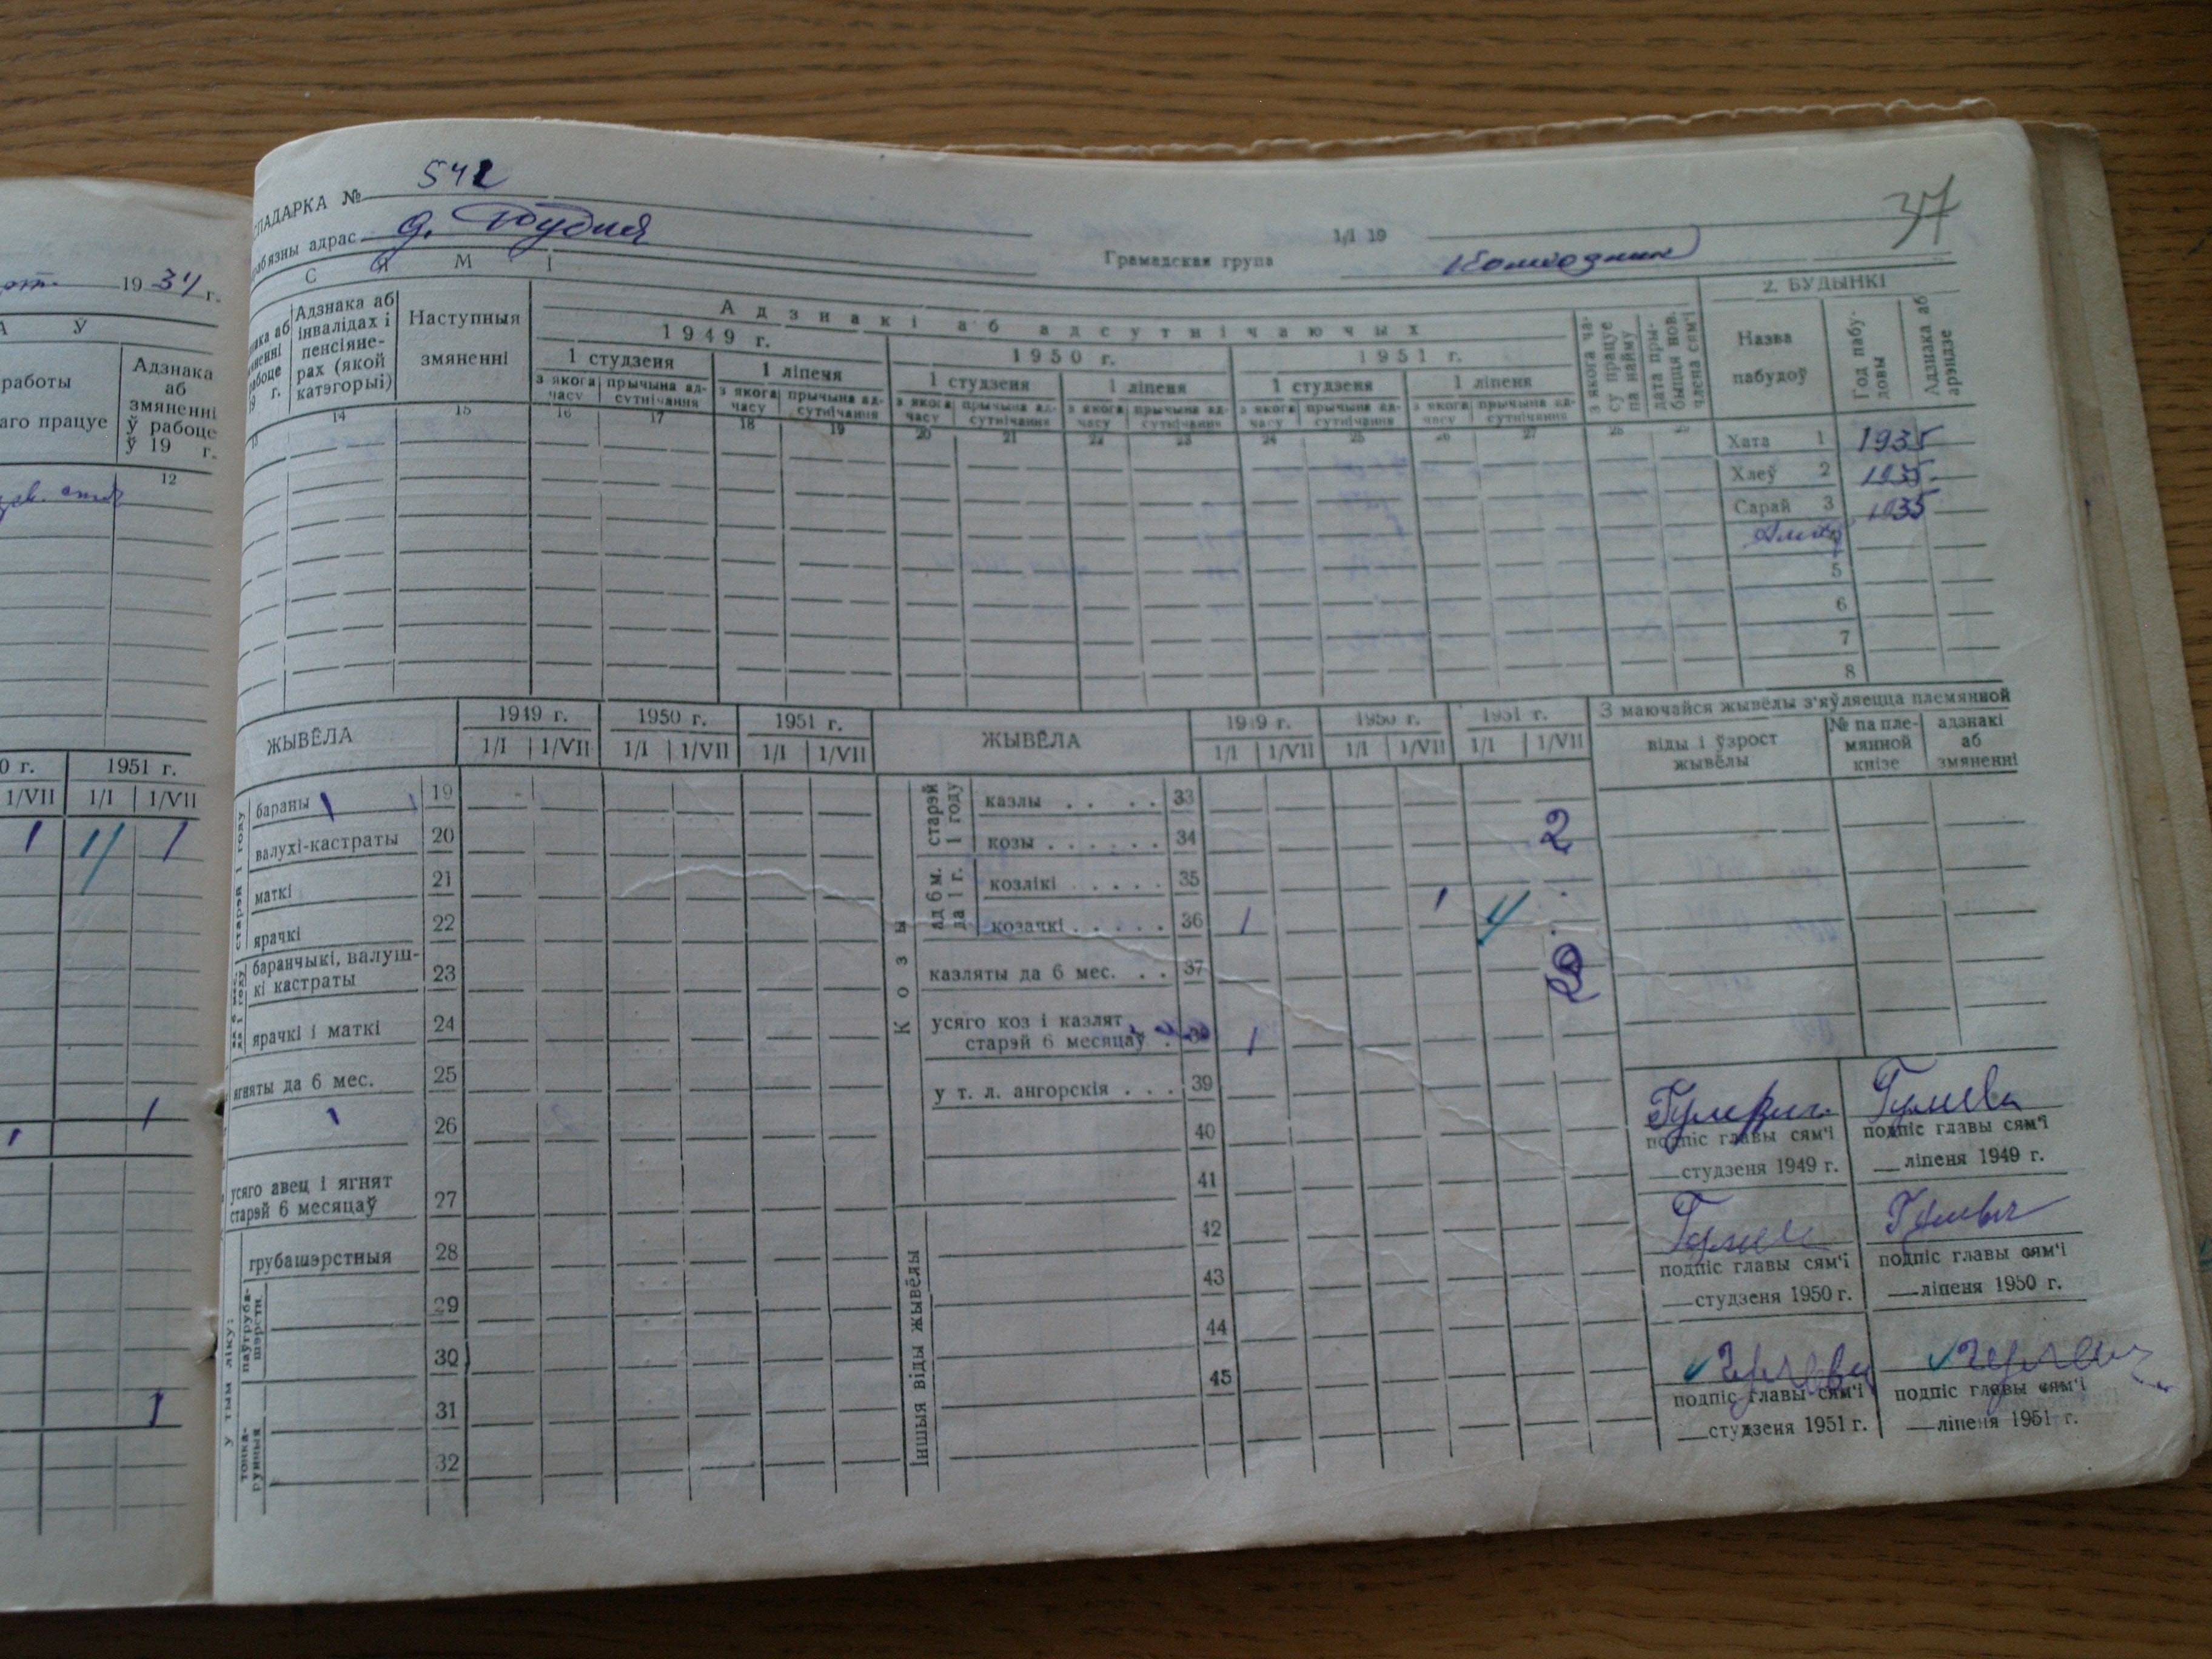 от. 19 34 г.
А Ў
работы
аго працуе
Адзнака
аб
змяненні
ў рабоце
ў 19 г.
12
0 г. 1951 г.
1/VII 1/I 1/VII
1 4 1
1
1
1
СПАДАРКА № 542
адрас д. Рудня
1/I 19
37
Грамадская група Колхозник
С Я М І
Адзнака аб
інвалідах і
пенсіяне-
рах (якой
катэгорыі)
Наступныя
змяненні
Адзнакі аб адсутнічаючых
1949 г. 1950 г. 1951 г.
1 студзеня 1 ліпеня 1 студзеня 1 ліпеня 1 студзеня 1 ліпеня
з якога часу прычына ад-сутнічання з якога часу прычына ад-сутнічання з якога часу прычына ад-сутнічання з якога часу прычына ад-сутнічання з якога часу прычына ад-сутнічання з якога часу прычына ад-сутнічання
з якога ча-
су працуе
па найму
дата пры-
быцця нов.
члена сям'і
13 14 15 16 17 18 19 20 21 22 23 24 25 26 27 28 29
2. БУДЫНКІ
Назва
пабудоў
Год пабу-
довы
Адзнака аб
арэндзе
Хата 1 1935
Хлеў 2 1935
Сарай 3 1935
5
6
7
8
ЖЫВЁЛА 1949 г. 1950 г. 1951 г.
1/I 1/VII 1/I 1/VII 1/I 1/VII
старэй 1 году
бараны 1 19
валухі-кастраты 20
маткі 21
ярачкі 22
баранчыкі, валуш-
кі кастраты 23
ярачкі і маткі 24
ягняты да 6 мес. 25
1 26
усяго авец і ягнят
старэй 6 месяцаў 27
у тым ліку:
грубашэрстныя 28
паўгруба-
шэрстн.
29
30
тонка-
рунныя
31
32
ЖЫВЁЛА 1949 г. 1950 г. 1951 г.
1/I 1/VII 1/I 1/VII 1/I 1/VII
Козы
старэй 1 году
казлы . . . . 33
козы . . . . . . 34 2
ад 6 м. да 1 г.
козлікі . . . . . 35
козачкі . . . . . 36 1 1 4
казляты да 6 мес. . . 37
усяго коз і казлят
старэй 6 месяцаў . 38 1
у т. л. ангорскія . . . 39
40
41
Іншыя віды жывёлы
42
43
44
45
З маючайся жывёлы з'яўляецца племянной
віды і ўзрост
жывёлы
№ па пле-
мянной
кнізе
адзнакі
аб
змяненні
подпіс главы сям'і подпіс главы сям'і
студзеня 1949 г. ліпеня 1949 г.
подпіс главы сям'і подпіс главы сям'і
студзеня 1950 г. ліпеня 1950 г.
подпіс главы сям'і подпіс главы сям'і
студзеня 1951 г. ліпеня 1951 г.